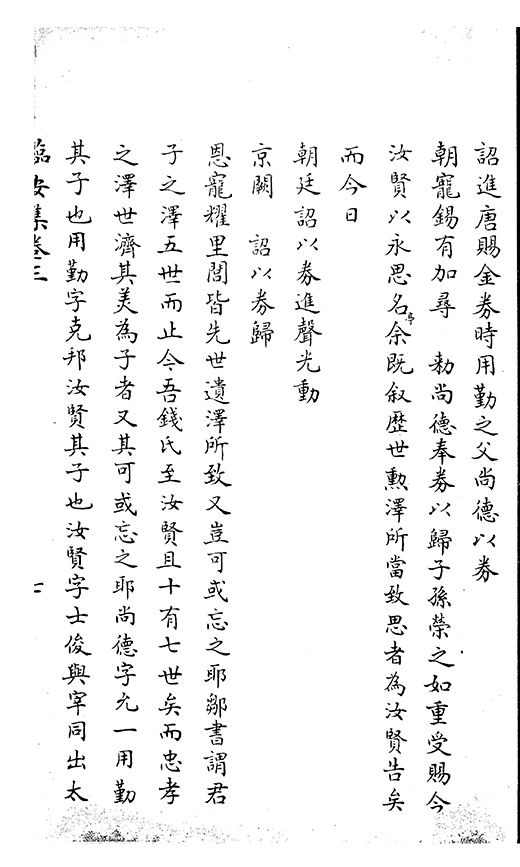 詔進唐賜金券時用勤之父尚德以券
朝寵錫有加尋　勑尚德奉券以歸子孫榮之如重受賜今
汝賢以永思名亭余既叙歴世勲澤所當致思者為汝賢告矣
而今日
朝廷詔以券進聲光動
京闕　詔以券歸
恩寵耀里閭皆先世遺澤所致又豈可或忘之耶鄒書謂君
子之澤五世而止今吾錢氏至汝賢且十有七世矣而忠孝
之澤世濟其美為子者又其可或忘之耶尚德字允一用勤
其子也用勤字克邦汝賢其子也汝賢字士俊與宰同出太
臨安集卷三